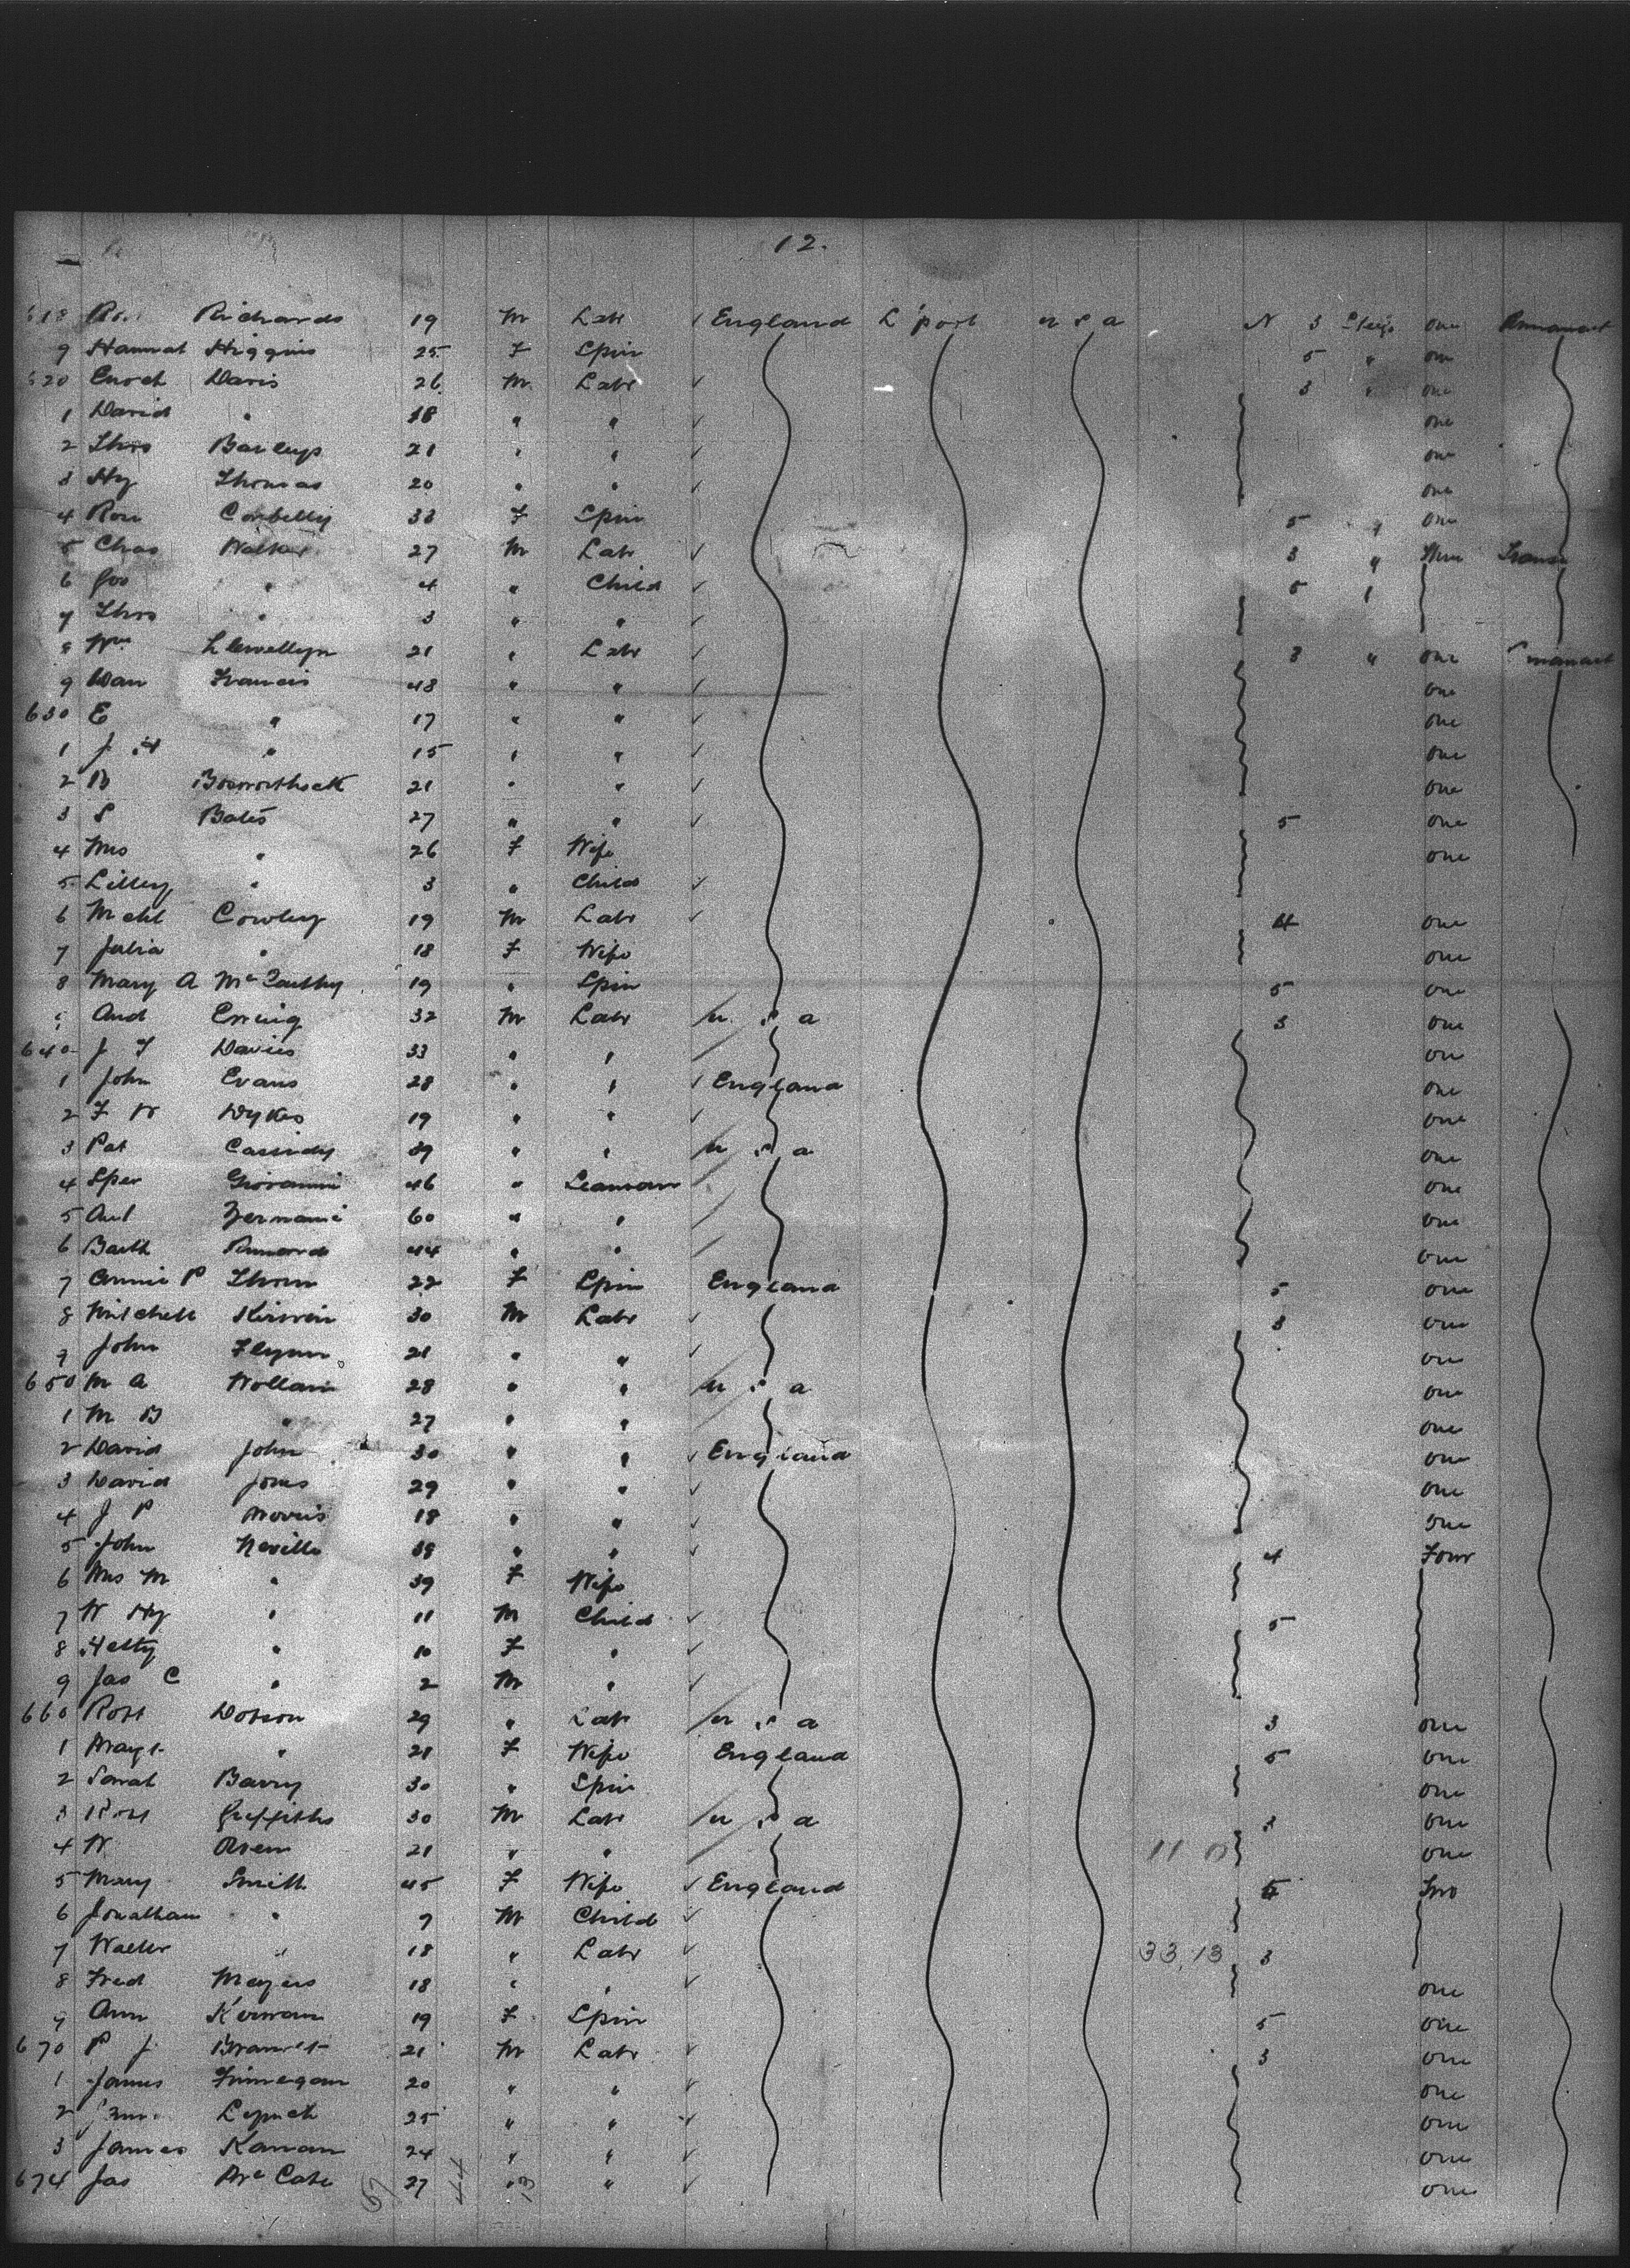 12.
Richards 19 M Labr England L'port u s a N 3 Steege one Permanent
9 Hannah Higgins 25 F Spin 5 " one
620 Enoch Davis 26 M Labr 3 " one
1 David " 18 " " one
2 Thos 21 " " one
3 Hy Thomas 20 " " one
4 Rose 33 F Spin 5 " one
5 Chas Walker 27 M Labr 3 " Three
6 Jos " 4 " Child 5
7 Thos " 3 " "
8 Wm Llewellyn 21 " Labr 3 " one
9 Wan Francis 48 " " one
630 E " 17 " " one
1 J H " 15 " " one
2 B 21 " " one
3 S Bates 27 " " 5 one
4 Mrs " 26 F Wife one
5 Lilley " 3 " Child
6 Mchl Cowley 19 M Labr 4 one
7 Julia " 18 F Wife one
8 Mary A McCarthy 19 " Spin 5 one
9 And Ewing 32 M Labr u s a 3 one
640 J T Davies 33 " " one
1 John Evans 28 " " England one
2 F W Dykes 19 " " one
3 Pat Cassidy 39 " " u s a one
4 Sper Giovanni 46 " Seaman one
5 Ant Zermanie 60 " " one
6 Barth 44 " " one
7 Annie P Thom 22 F Spin England 5 one
8 Mitchell Kirwin 30 M Labr 3 one
9 John Flynn 21 " " one
650 M A 28 " " u s a one
1 M B " 27 " " one
2 David John 30 " " England one
3 David Jones 29 " " one
4 J P Morris 18 " " one
5 John Neville 39 " " 4 Four
6 Mrs M " 39 F Wife
7 W Hy " 11 M Child 5
8 Hetty " 10 F "
9 Jas C " 2 M "
660 Robt Dobson 29 " Labr u s a 3 one
1 Magt " 21 F Wife England 5 one
2 Sarah Barry 30 " Spin one
3 Robt Griffiths 30 M Labr u s a 3 one
4 W Owen 21 " " 11 0 one
5 Mary Smith 45 F Wife England 5 Two
6 Jonathan " 9 M Child
7 Walter " 18 " Labr 33,13 3
8 Fred Meyers 18 " " one
9 Ann Kerwan 19 F Spin 5 one
670 P J 21 M Labr 3 one
1 James Finnegan 20 " " one
2 Lynch 25 " " one
3 James Kanan 24 " " one
674 Jas McCabe 27 " " one
57 44 13